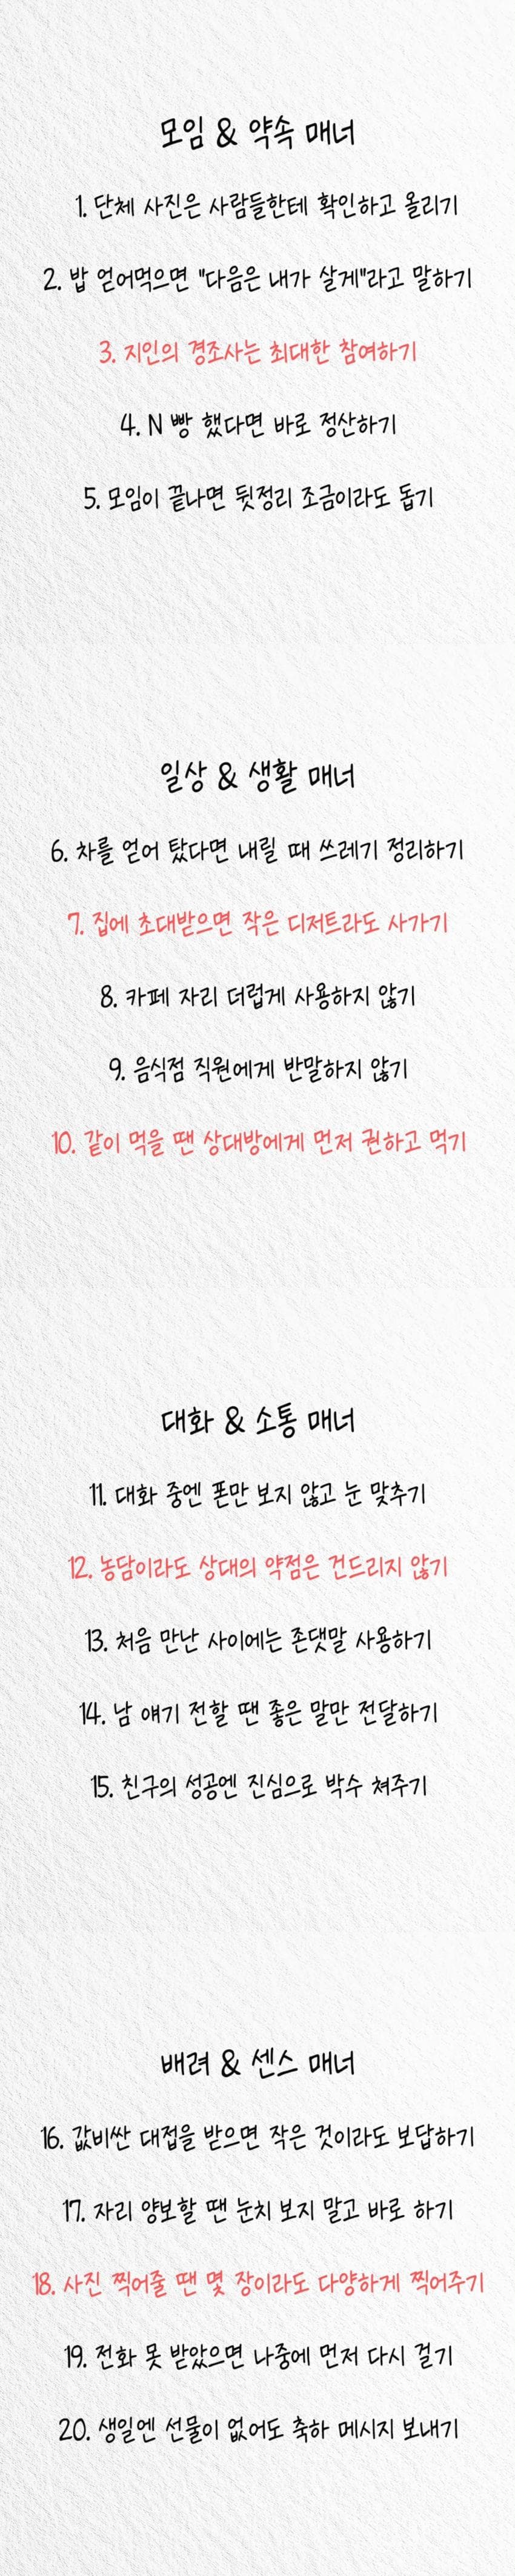 모임 & 약속 매너
1. 단체 사진은 사람들한테 확인하고 올리기
2. 밥 얻어먹으면 "다음은 내가 살게"라고 말하기
3. 지인의 경조사는 최대한 참여하기
4. N 빵 했다면 바로 정산하기
5. 모임이 끝나면 뒷정리 조금이라도 돕기
일상 & 생활 매너
6. 차를 얻어 탔다면 내릴 때 쓰레기 정리하기
7. 집에 초대받으면 작은 디저트라도 사가기
8. 카페 자리 더럽게 사용하지 않기
9. 음식점 직원에게 반말하지 않기
10. 같이 먹을 땐 상대방에게 먼저 권하고 먹기
대화 & 소통 매너
11. 대화 중엔 폰만 보지 않고 눈 맞추기
12. 농담이라도 상대의 약점은 건드리지 않기
13. 처음 만난 사이에는 존댓말 사용하기
14. 남 얘기 전할 땐 좋은 말만 전달하기
15. 친구의 성공엔 진심으로 박수 쳐주기
배려 & 센스 매너
16. 값비싼 대접을 받으면 작은 것이라도 보답하기
17. 자리 양보할 땐 눈치 보지 말고 바로 하기
18. 사진 찍어줄 땐 몇 장이라도 다양하게 찍어주기
19. 전화 못 받았으면 나중에 먼저 다시 걸기
20. 생일엔 선물이 없어도 축하 메시지 보내기